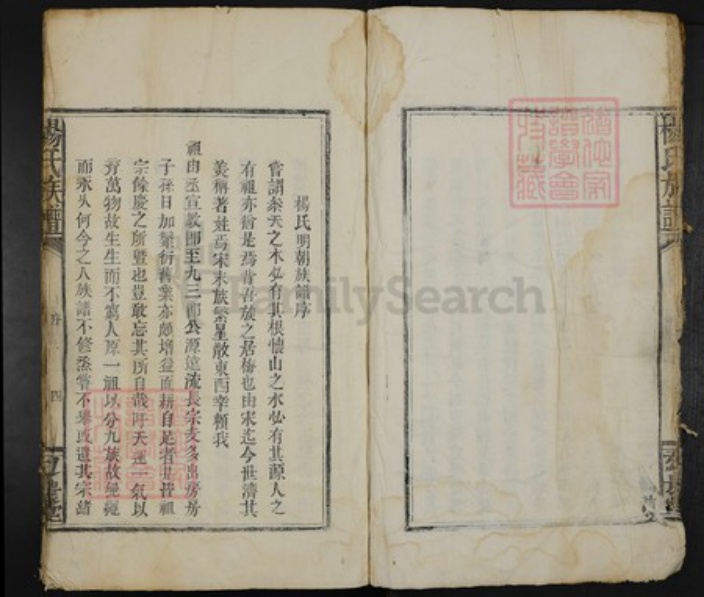 楊氏族譜
楊氏明朝族譜序
嘗謂參天之木必有其根懷山之水必有其源人之
有祖亦猶是焉昔吾族之居梅也由宋迄今世濟其
美稱著姓焉宋末族繁星散東西幸賴我
祖由丞宣教郎至九三郎公源遠流長宗支多出房房
子孫日加繁衍舊業亦頗增益而耕自足者此皆祖
宗餘慶之所暨也豈敢忘其所自哉吁天運一氣以
育萬物故生生而不窮人原一祖以分九族故綿綿
而永久何今之人族譜不修烝嘗不舉或遺其宗緒
楊氏族譜
序
四
FamilySearch